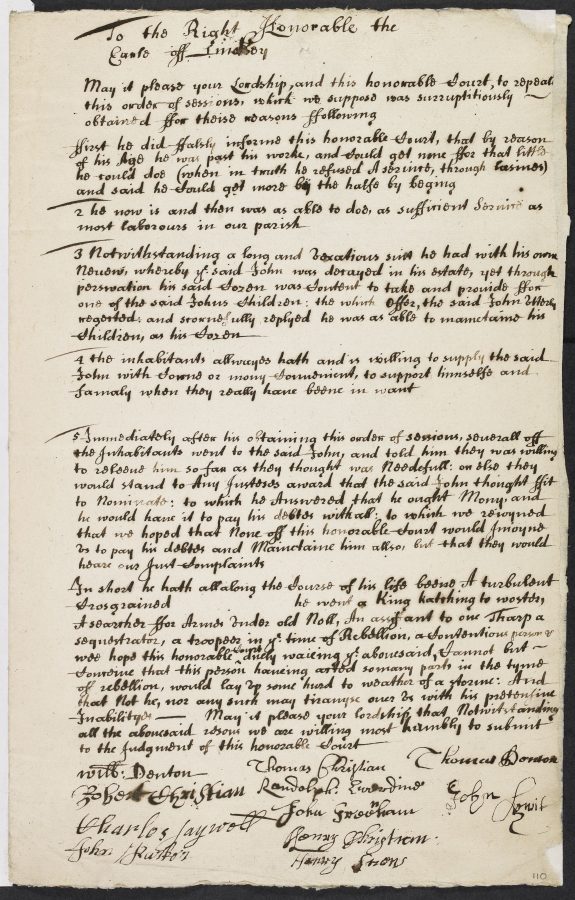 To the Right Honorable the
Earle off Lindsey
May it please your Lordship, and this honorable Court, to repeal
this order of sessions, which we suppose was surruptitiously
obtained ffor theise reasons ffollowing
ffirst he did ffalsly informe this honorable Court, that by reason
of his Age he was past his worke, and Could get none ffor that little
he could doe (when in truth he refused A service, through lasines)
and said he Could get more by the halfe by beging
2 he now is and then was as able to doe, as sufficient Service as
most labourors in our parish
3 Notwithstanding a long and vexatious suit he had with his own
whereby ye said John was decayed in his estate, yet through
perswation his said Cozen was Content to take and provide ffor
one of the said Johns Children: the which Offer, the said John Utterly
regected: and scornefully replyed he was as able to mainetaine his
Children, as his Cozen
4 the inhabitants allwayes hath and is willing to supply the said
John with Corne or mony Convenient, to support himselfe and
famaly when they really have beene in want
5 Immediately after his obtaining this order of sessions, severall off
the Inhabitants went to the said John, and told him they was willing
to releeve him so far as they thought was Needefull: or else they
would stand to Any Justeces award that the said John thought ffit
to Nominate: to which he Answered that he ought Mony, and
he would have it to pay his debtes with all: to which we rejoyned
that we hoped that None off this honorable Court would Injoyne
us to pay his debtes and Mainetaine him allso, but that they would
heare our Just Complaints
In short he hath all along the Course of his life beene A turbulent
Crosgrained he went a King katching to woster,
A searcher ffor Armes Under old Noll, An assistant to one Tharp a
sequestrator, a trooper in ye time of Rebellion, a Contentious person &
wee hope this honorable Court duely waieing ye abovesaid, Cannot but
Conceive that this person haveing acted so many parts in the tyme
off rebellion, would lay up some hurd to weather of a storme: And
that Not he, nor any such may tiranyse over us with his pretensive
Inabilityes — May it please your lordship that Notwitstanding
all the abovesaid resons we are willing most humbly to submit
to the Judgment of this honorable Court
Will: Denton Thomas Christian Thomas
Robert Christian Randolph John
Charles John Freeman
John Henry Christian
Henry
110